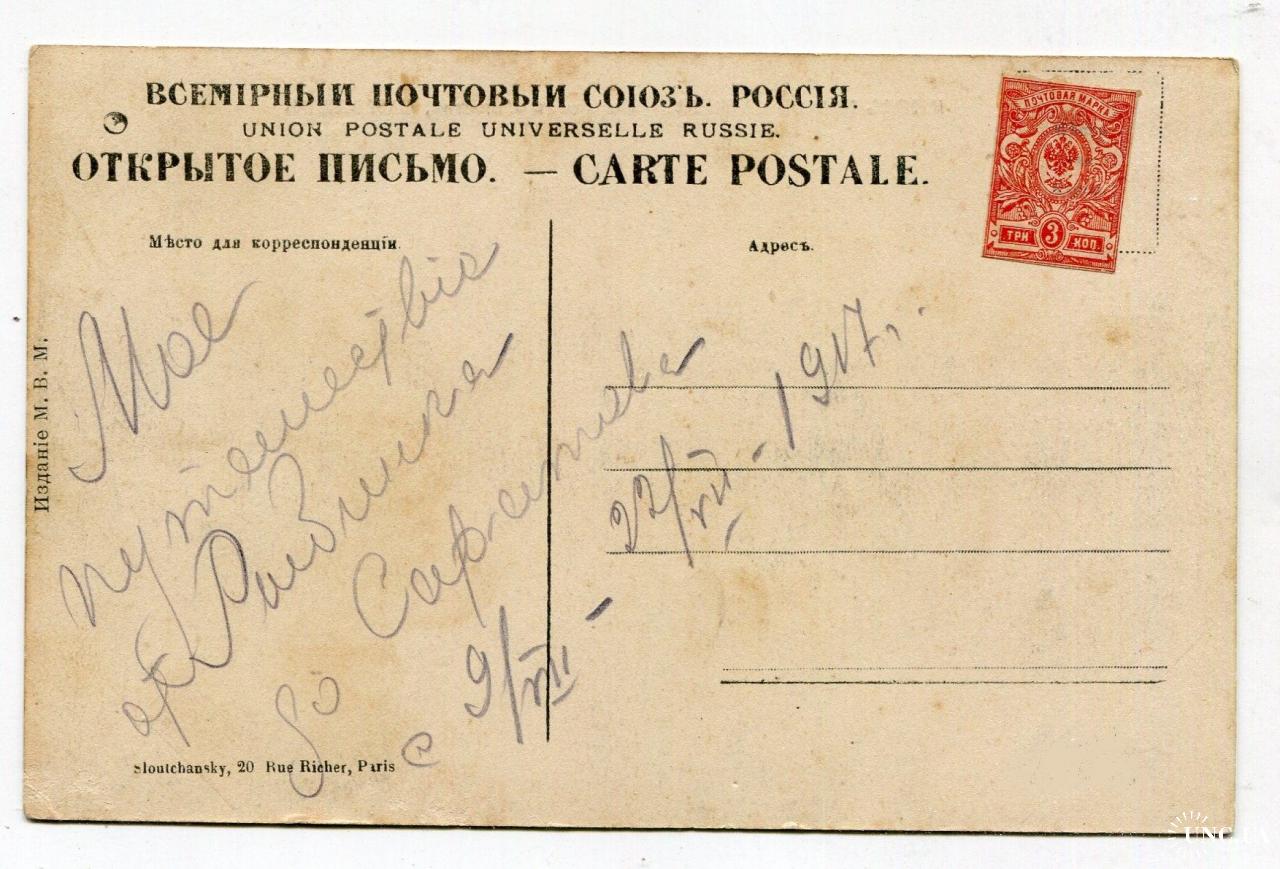 ВСЕМІРНЫЙ ПОЧТОВЫЙ СОЮЗЪ. РОССІЯ.
UNION POSTALE UNIVERSELLE RUSSIE.
ОТКРЫТОЕ ПИСЬМО. — CARTE POSTALE.
ПОЧТОВАЯ МАРКА
ТРИ 3 КОП.
Мѣсто для корреспонденціи.
Адресъ.
Мое
путешествіе
от Рыбинска
до Саратова
с 9/VII –
22/VII – 1917 г.
Изданіе М. В. М.
Sloutchansky, 20 Rue Richer, Paris
UNC.UA